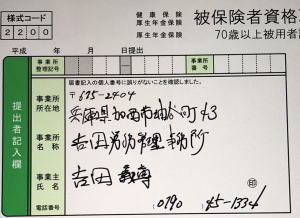 様式コード
2200
健康保険
厚生年金保険
厚生年金保険
被保険者資格
70歳以上被用者
平成 年 月 日提出
事業所整理記号
事業所番号
届書記入の個人番号に誤りがないことを確認しました。
提出者記入欄
事業所所在地
〒675-2404
兵庫県加西市 町43
事業所名称
吉田労務管理事務所
事業主氏名
吉田
印
電話番号
0790 (45-1334)